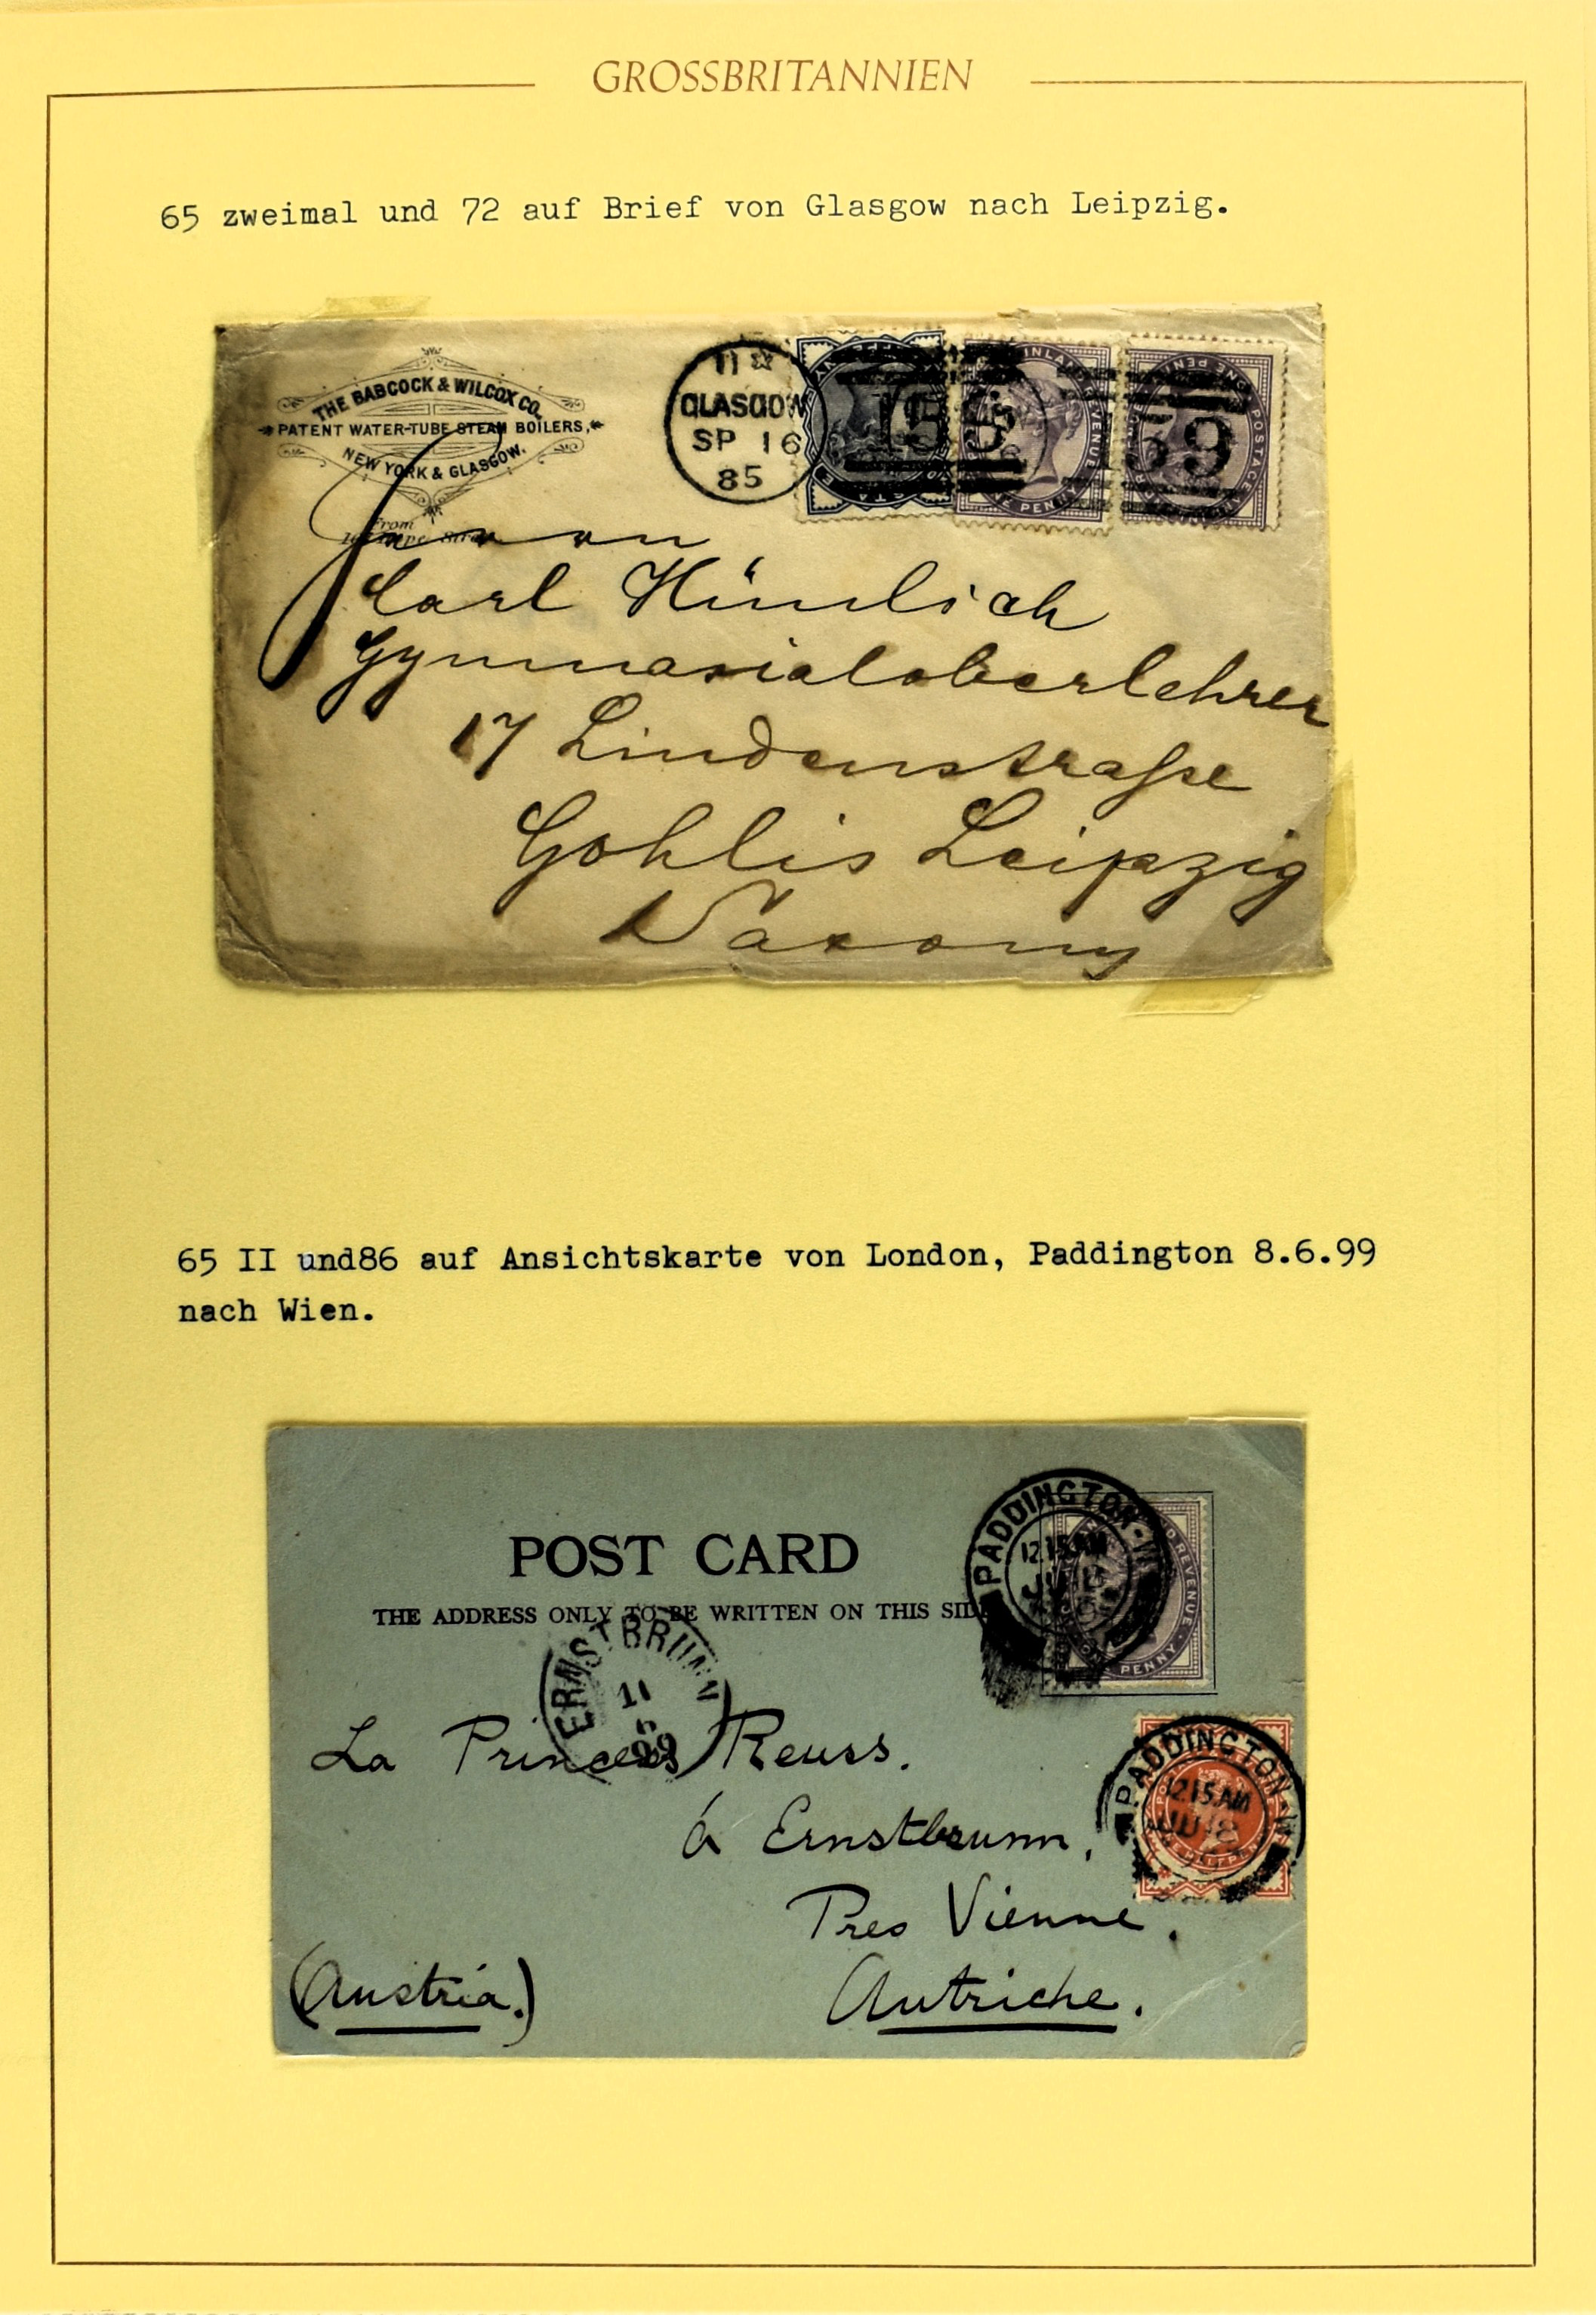 GROSSBRITANNIEN
65 zweimal und 72 auf Brief von Glasgow nach Leipzig.
THE BABCOCK & WILCOX CO.
PATENT WATER-TUBE STEAM BOILERS,
NEW YORK & GLASGOW.
From
11 ☆
GLASGOW
SP 16
85
159
59
Herrn
Carl
Gymnasialoberlehrer
17 Lindenstraße
Gohlis Leipzig
Saxony
65 II und86 auf Ansichtskarte von London, Paddington 8.6.99
nach Wien.
POST CARD
THE ADDRESS ONLY TO BE WRITTEN ON THIS SIDE
PADDINGTON·W
12 15 AM
REVENUE
PENNY
ERNSTBRUNN
11
6
99
La Princess Reuss.
à Ernstbrunn,
Pres Vienne.
(Austria.)
Autriche.
PADDINGTON·W
12 15 AM
JU 8